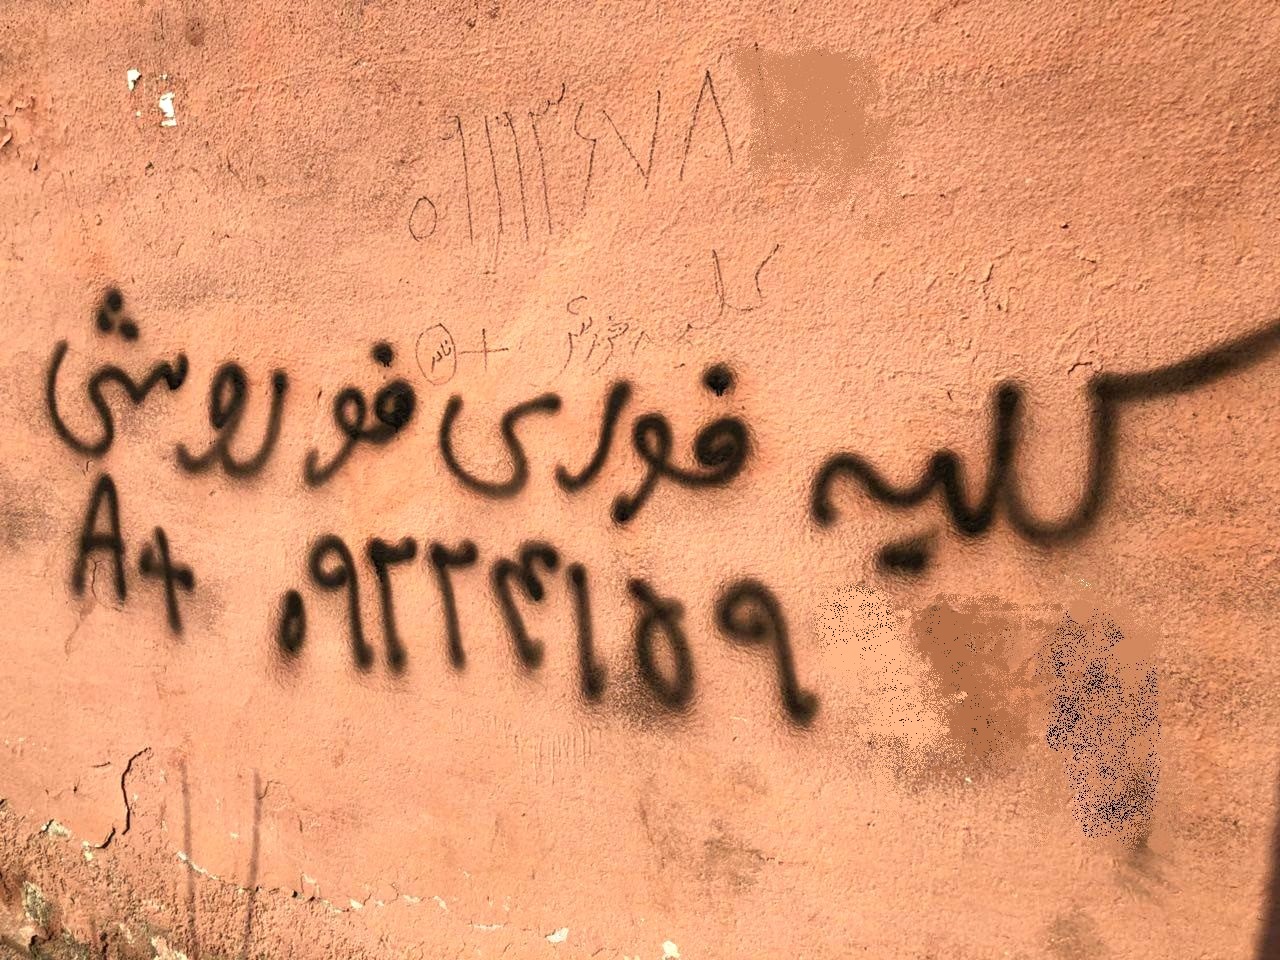 ۰۹۱۱۳٤۷۸
کلیه فروشی + نادر
کلیه فوری فوروشی
A+ ۰۹۲۲۴۱۵۹